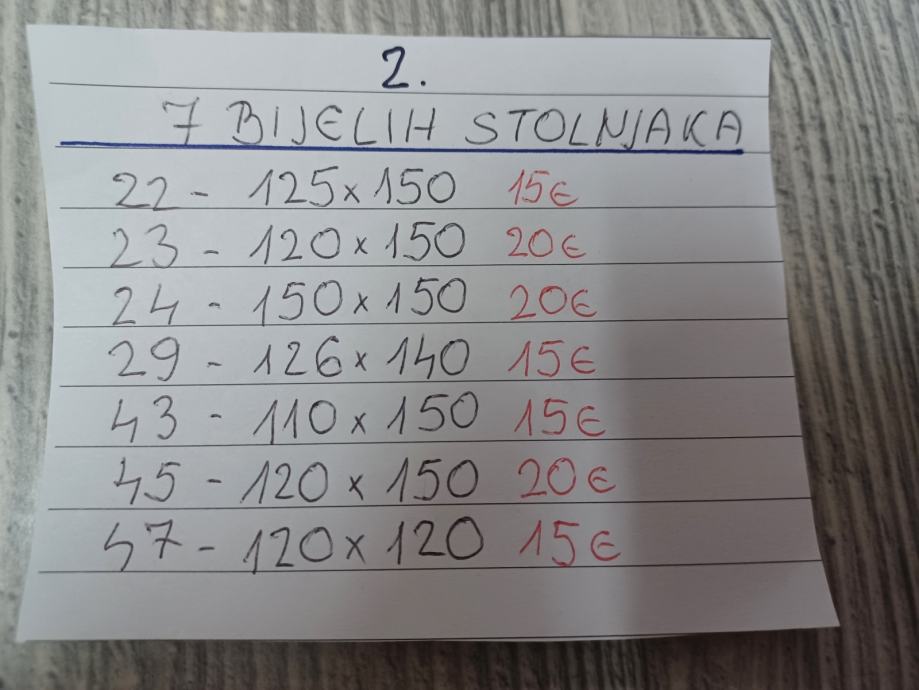 2.
7 BIJELIH STOLNJAKA
22 - 125 x 150 15€
23 - 120 x 150 20€
24 - 150 x 150 20€
29 - 126 x 140 15€
43 - 110 x 150 15€
45 - 120 x 150 20€
47 - 120 x 120 15€